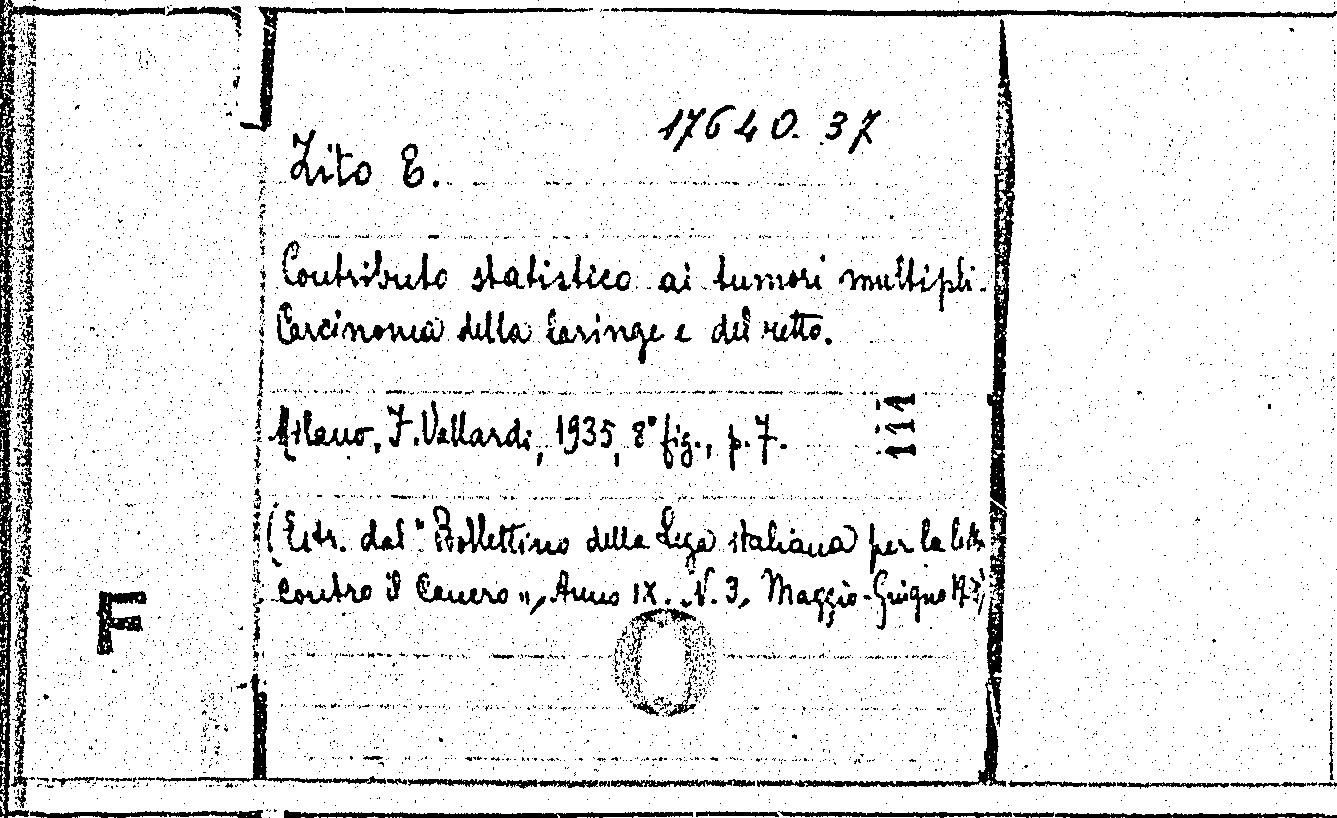 17640. 37
Zito E.
Contributo statistico ai tumori multipli.
Carcinoma della laringe e del retto.
Milano, F. Vallardi, 1935, 8° fig., p. 7.
111
(Estr. dal "Bollettino della Lega italiana per la lotta
contro il Cancro", Anno IX. N. 3, Maggio-Giugno
F